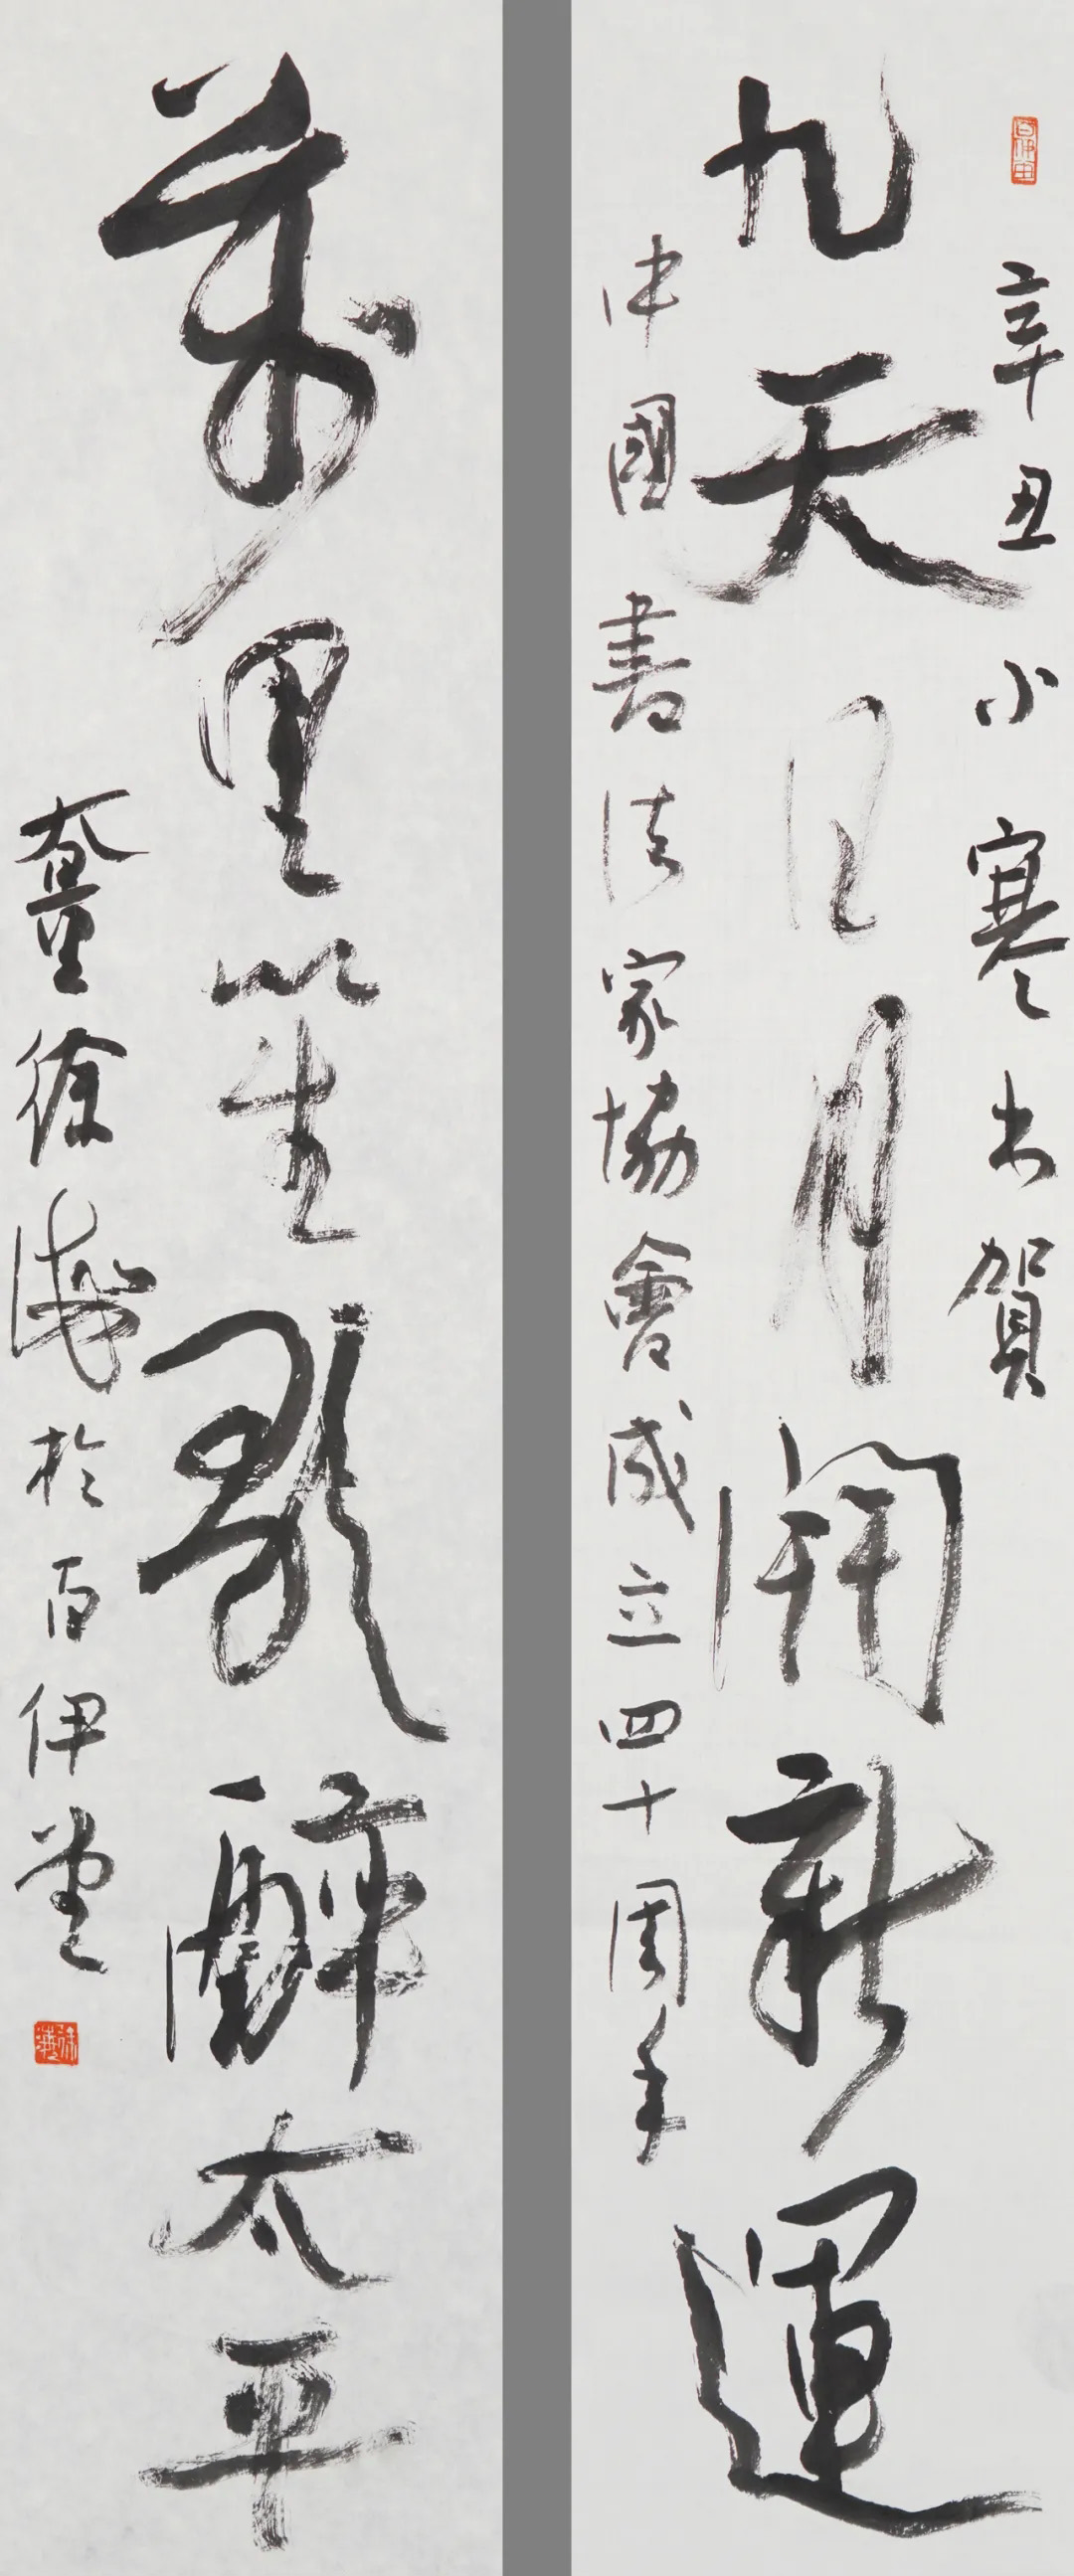 辛丑小寒书賀
九天日月開新運
中國書法家協會成立四十周年
萬里笙歌醉太平
徐海於百伊堂